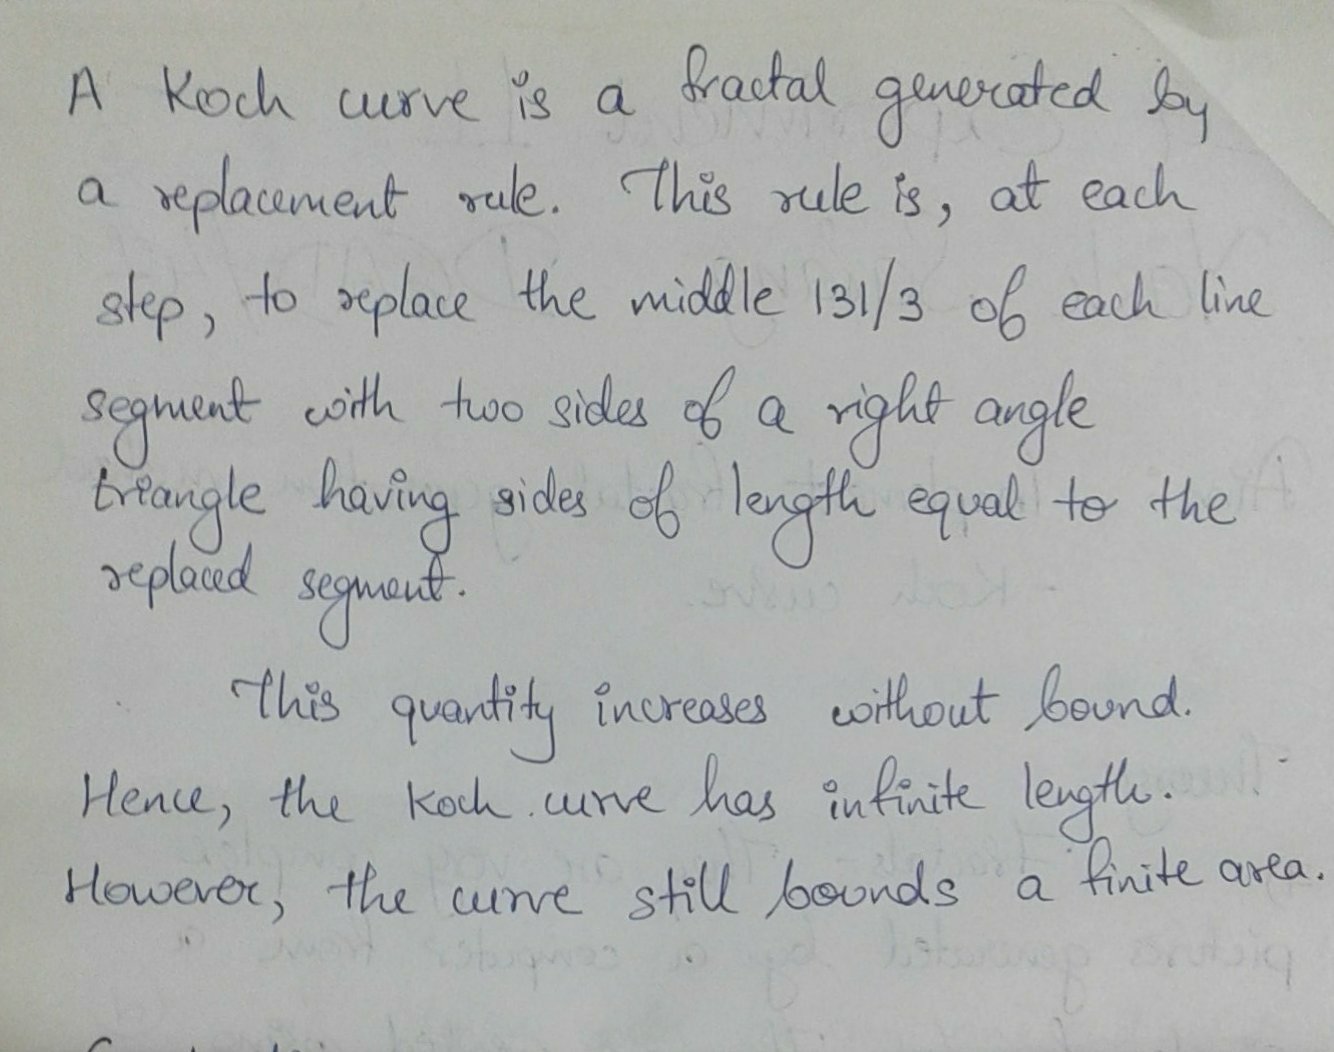 A Koch curve is a fractal generated by
a replacement rule. This rule is, at each
step, to replace the middle 131/3 of each line
segment with two sides of a right angle
triangle having sides of length equal to the
replaced segment.
This quantity increases without bound.
Hence, the Koch curve has infinite length.
However, the curve still bounds a finite area.